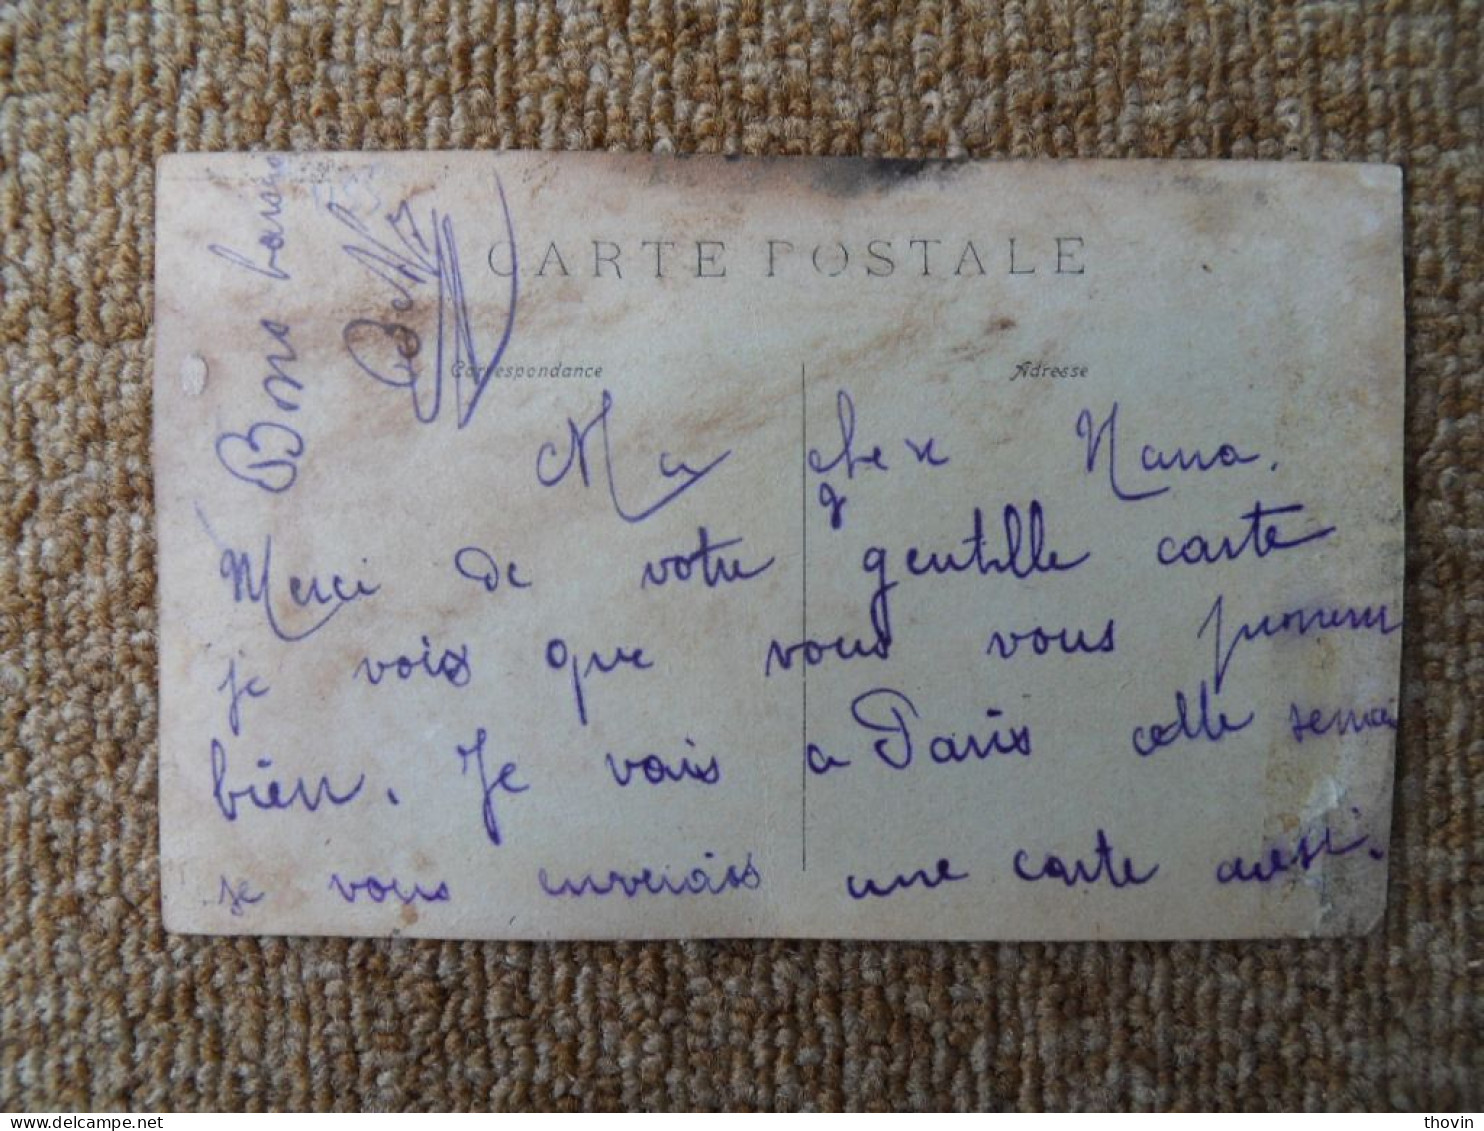 CARTE POSTALE
Correspondance
Adresse
Ma cher Nana.
Merci de votre gentille carte
je vois que vous vous promene
bien. Je vais a Paris cette semai
je vous enverais une carte aussi.
Bons baisers
thovin